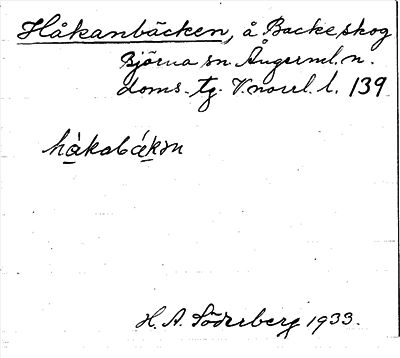 Håkanbäcken, å Backe skog
Björna sn. Ångerml. n.
doms. tg. V. norrl. l. 139
håkabäkən
H. A. Söderberg 1933.